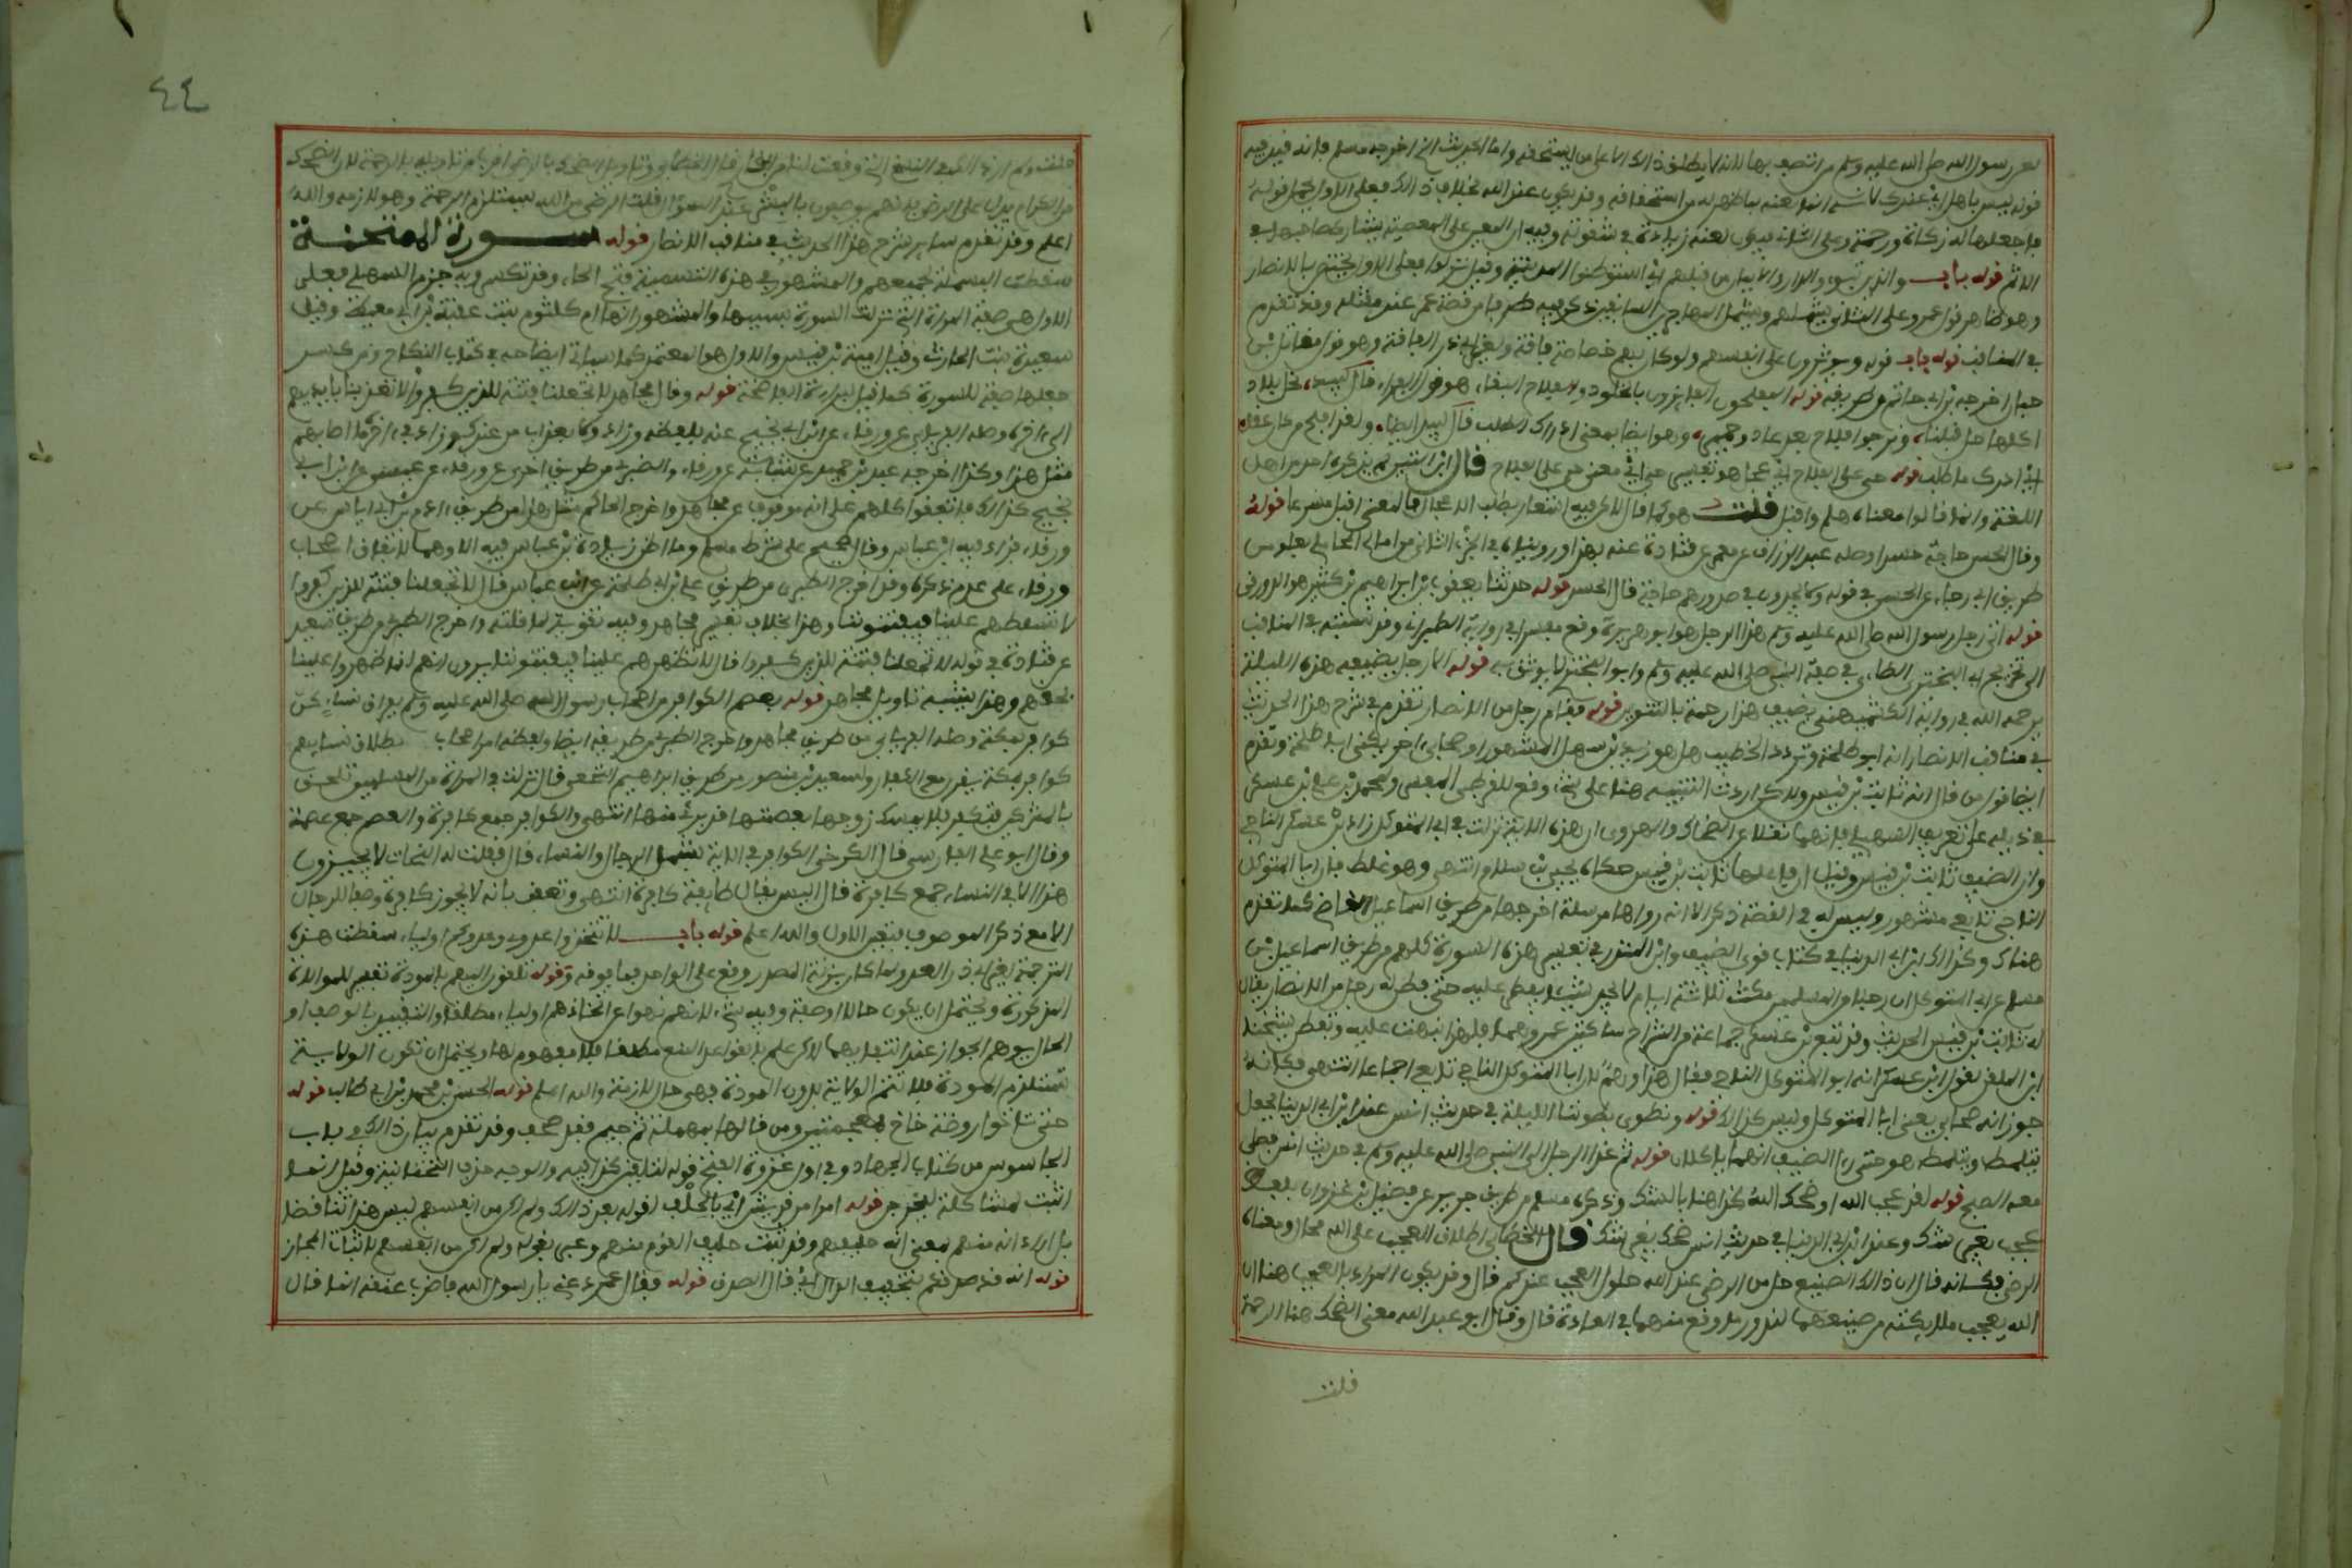 لعن رسول الله صلى الله عليه وسلم من اتصف بها لانه لا يطلق ذلك الا على من يستحقه واما الحديث الذي اخرجه مسلم فانه قيد فيه
قوله ليس باهل اي عندك لانه انما لعنه بما ظهر له من استحقاقه وقد يكون عند الله بخلاف ذلك فعلى الاول يحمل قوله
فاجعلها له زكاة ورحمة وعلى الثاني فيكون لعنه زيادة في شقوته وفيه ان المعين على المعصية يشارك صاحبها في
الاثم قوله باب والذين تبوءوا الدار والايمان من قبلهم اي استوطنوا المدينة وقيل نزلوا فعلى الاول يختص بالانصار
وهو ظاهر قول عمر وعلى الثاني يشملهم ويشمل المهاجرين السابقين ذكر فيه طرفا من قصة عمر عند مقتله وقد تقدم
في المناقب قوله باب قوله ويوثرون على انفسهم ولو كان بهم خصاصة فاقة ولغير ابي ذر الفاقة وهو قول مقاتل بن
حيان اخرجه ابن ابي حاتم من طريقه قوله المفلحون الفائزون بالخلود والفلاح البقاء هو قول الفراء قال لبيد نحل بلادا
كلها حل قبلنا ونرجو فلاحا بعد عاد وحمير وهو ايضا بمعنى ادراك الطلب قال لبيد ايضا ولقد افلح من كان عقل
اي ادرك ما طلب قوله حي على الفلاح اي عجل هو تفسير حي اي معنى حي على الفلاح قال ابن التين لم يذكره احد من اهل
اللغة وانما قالوا معناه هلم واقبل قلت هو كما قال لكن فيه اشعار بطلب الاعجال فالمعنى اقبل مسرعا قوله
وقال الحسن حاجة حسدا وصله عبد الرزاق عن معمر عن قتادة عنه بهذا ورويناه في الجزء الثاني من امالي المحاملي بعلو من
طريق ابي رجاء عن الحسن في قوله ولا يجدون في صدورهم حاجة قال الحسد قوله حدثنا يعقوب بن ابراهيم بن كثير هو الدورقي
قوله اتى رجل رسول الله صلى الله عليه وسلم هذا الرجل هو ابو هريرة وقع مفسرا في رواية الطبراني وقد نسبته في المناقب
الى تخريج ابي البختري الطائي في صفة النبي صلى الله عليه وسلم وابو البختري لا يوثق به قوله الا رجل يضيفه هذه الليلة
يرحمه الله في رواية الكشميهني يضيف هذا رحمة بالتنوين قوله فقام رجل من الانصار تقدم في شرح هذا الحديث
في مناقب الانصار انه ابو طلحة وتردد الخطيب هل هو زيد بن سهل المشهور او صحابي اخر يكنى ابا طلحة وتقدم
ايضا قول من قال انه ثابت بن قيس ولكن اردت التنبيه هنا على شيء وقع للقرطبي المفسر ولمحمد بن علي بن عسكر
في ذيله على تعريف السهيلي فانهما نقلا عن النحاس والمهدوي ان هذه الاية نزلت في ابي المتوكل زاد بن عسكر الناجي
وان الضيف ثابت بن قيس وقيل ان فاعلها ثابت بن قيس حكاه يحيى بن سلام انتهى وهو غلط فان ابا المتوكل
الناجي تابعي مشهور وليس له في القصة ذكر الا انه رواها مرسلة اخرجها من طريق اسماعيل القاضي كما تقدم
هناك وكذلك ابن ابي الدنيا في كتاب قرى الضيف وابن المنذر في تفسير هذه السورة كلهم من طريق اسماعيل بن
مسلم عن ابي المتوكل ان رجلا من المسلمين مكث ثلاثة ايام لا يجد شيئا يفطر عليه حتى فطن له رجل من الانصار يقال
له ثابت بن قيس الحديث وقد تبع بن عسكر جماعة من الشراح ساكتين عن وهمه فلهذا نبهت عليه وتفطن شيخنا
ابن الملقن لقول ابن عسكر انه ابو المتوكل الناجي فقال هذا وهم لان ابا المتوكل الناجي تابعي اجماعا انتهى فكانه
جوز انه صحابي يعني ابا المتوكل وليس كذلك قوله ونطوي بطوننا الليلة في حديث انس عند ابن ابي الدنيا فجعل
يتلمظ وتتلمظ هو حتى راى الضيف انهما ياكلان قوله ثم غدا الرجل الى النبي صلى الله عليه وسلم في حديث انس فصلى
معه الصبح قوله لقد عجب الله او ضحك الله كذا هنا بالشك وذكره مسلم من طريق جرير عن فضيل بن غزوان بلفظ
عجب بغير شك وعند ابن ابي الدنيا في حديث انس ضحك بغير شك قال الخطابي اطلاق العجب على الله محال ومعناه
الرضى فكانه قال ان ذلك الصنيع حل من الرضى عند الله حلول العجب عندكم قال وقد يكون المراد بالعجب هنا ان
الله يعجب ملائكته من صنيعهما لندور ما وقع منهما في العادة قال وقال ابو عبد الله معنى الضحك هنا الرحمة
قلت
٤٤
قلت ولم ار ذلك في النسخ التي وقعت لنا من البخاري قال الخطابي وتاويل الضحك بالرضى اقرب من تاويله بالرحمة لان الضحك
من الكرام يدل على الرضى فانهم يوصفون بالبشر عند السؤال قلت الرضى من الله يستلزم الرحمة وهو لازمه والله
اعلم وقد تقدم سائر شرح هذا الحديث في مناقب الانصار قوله سورة الممتحنة
سقطت البسملة لجميعهم والمشهور في هذه التسمية فتح الحاء وقد تكسر وبه جزم السهيلي فعلى
الاول هي صفة المراة التي نزلت السورة بسببها والمشهور انها ام كلثوم بنت عقبة بن ابي معيط وقيل
سعيدة بنت الحارث وقيل اميمة بنت بشر والاول هو المعتمد كما سياتي ايضاحه في كتاب النكاح ومن كسر
جعلها صفة للسورة كما قيل لبراءة الفاضحة قوله وقال مجاهد لا تجعلنا فتنة للذين كفروا لا تعذبنا بايديهم
الى اخره وصله الفريابي عن ورقاء عن ابن ابي نجيح عنه بلفظه وزاد ولا بعذاب من عندك وزاد في اخره ما اصابهم
مثل هذا وكذا اخرجه عبد بن حميد عن شبابة عن ورقاء والطبري من طريق اخرى عن ورقاء عن عيسى عن ابن ابي
نجيح كذلك فاتفقوا كلهم على انه موقوف عن مجاهد واخرج الحاكم مثل هذا من طريق ادم بن ابي اياس عن
ورقاء فزاد فيه ابن عباس وقال صحيح على شرط مسلم وما اظن زيادة بن عباس فيه الا وهما لاتفاق اصحاب
ورقاء على عدم ذكره وقد اخرج الطبري من طريق علي بن ابي طلحة عن ابن عباس قال لا تجعلنا فتنة للذين كفروا
لا تسلطهم علينا فيفتنونا وهذا بخلاف تفسير مجاهد وفيه تقوية لما قلته واخرج الطبري من طريق سعيد
عن قتادة في قوله لا تجعلنا فتنة للذين كفروا قال لا تظهرهم علينا فيفتتنوا يرون انهم انما ظهروا علينا
بحقهم وهذا يشبه تاويل مجاهد قوله بعصم الكوافر امر اصحاب رسول الله صلى الله عليه وسلم بفراق نسائهم كن
كوافر بمكة وصله الفريابي من طريق مجاهد واخرجه الطبري من طريقه ايضا ولفظه امر اصحاب بطلاق نسائهم
كوافر بمكة يقرن مع الكفار ولسعيد بن منصور من طريق ابراهيم النخعي قال نزلت في المراة من المسلمين تلحق
بالمشركين فتكفر فلا يمسك زوجها بعصمتها قد برئ منها انتهى والكوافر جمع كافرة والعصم جمع عصمة
وقال ابو علي الفارسي قال الكرخي الكوافر في الاية يشمل الرجال والنساء قال فقلت له النحاة لا يجيزون
هذا الا في النساء جمع كافرة قال اليس يقال طائفة كافرة انتهى وتعقب بانه لا يجوز كافرة وصفا للرجال
الا مع ذكر الموصوف فتعين الاول والله اعلم قوله باب لا تتخذوا عدوي وعدوكم اولياء سقطت هذه
الترجمة لغير ابي ذر والعدو لما كان بزنة المصدر وقع على الواحد فما فوقه وقوله تلقون اليهم بالمودة تفسير للموالاة
المذكورة ويحتمل ان يكون حالا او صفة وفيه شيء لانهم نهوا عن اتخاذهم اولياء مطلقا والتقييد بالوصف او
الحال يوهم الجواز عند انتفائهما لكن علم بالقواعد المنع مطلقا فلا مفهوم لها ويحتمل ان تكون الولاية
تستلزم المودة فلا تتم الولاية بدون المودة فهي حال لازمة والله اعلم قوله الحسن بن محمد بن ابي طالب قوله
حتى تاتوا روضة خاخ بمعجمتين ومن قالها بمهملة ثم جيم فقد صحف وقد تقدم بيان ذلك في باب
الجاسوس من كتاب الجهاد وفي اول غزوة الفتح قوله لتلقين كذا فيه والوجه حذف التحتانية وقيل انما
اثبتت لمشاكلة لتخرجن قوله امرا من قريش اي بالحلف لقوله بعد ذلك ولم اكن من انفسهم ليس هذا تناقضا
بل اراد انه منهم بمعنى انه حليفهم وقد ثبت حليف القوم منهم وعبر بقوله ولم اكن من انفسهم لاثبات المجاز
قوله انه قد صدقكم بتخفيف الدال اي قال الصدق قوله فقال عمر دعني يا رسول الله فاضرب عنقه انما قال